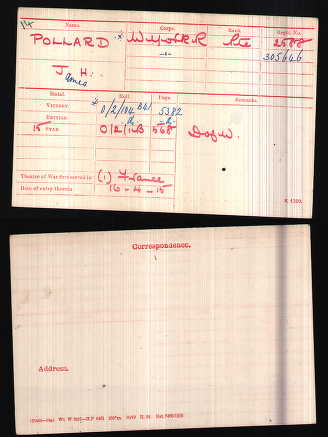 Name. Corps. Rank. Regtl. No.
POLLARD W. York. R. Pte 2588
—"— 305646
J. H.
James
Medal. Roll. Page. Remarks.
Victory 0/2/104 B41 5382
British do. do.
15 Star 0/2/1LB 568 D of W.
Theatre of War first served in (1) France
Date of entry therein 16-4-15
K 1380.
Correspondence.
Address.